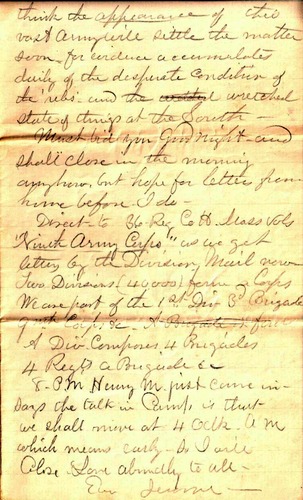 think the appearance of this
vast Army will settle the matter
soon - for evidence accumulates
daily of the desperate condition of
the "rebs" and the wretched
state of things at the South -
Must bid you Good night - and
shall close in the morning
anyhow, but hope for letter from
home before I do -
Direct - to 36 Reg Co H. Mass Vols
"Ninth Army Corps," as we get
letters by the Division Mail now
Two Divisions (40000) form a Corps
We are part of the 1st Div 3d Brigade
9th Corps &c - A Brigade
A Div. Composes 4 Brigades
4 Regts a Brigade &c
8. P.M Henry M. just came in -
Says the talk in Camp is that
we shall move at 4 Oclk. A M
which means early - So I will
Close - Love abundly to all -
Ever Jerome -